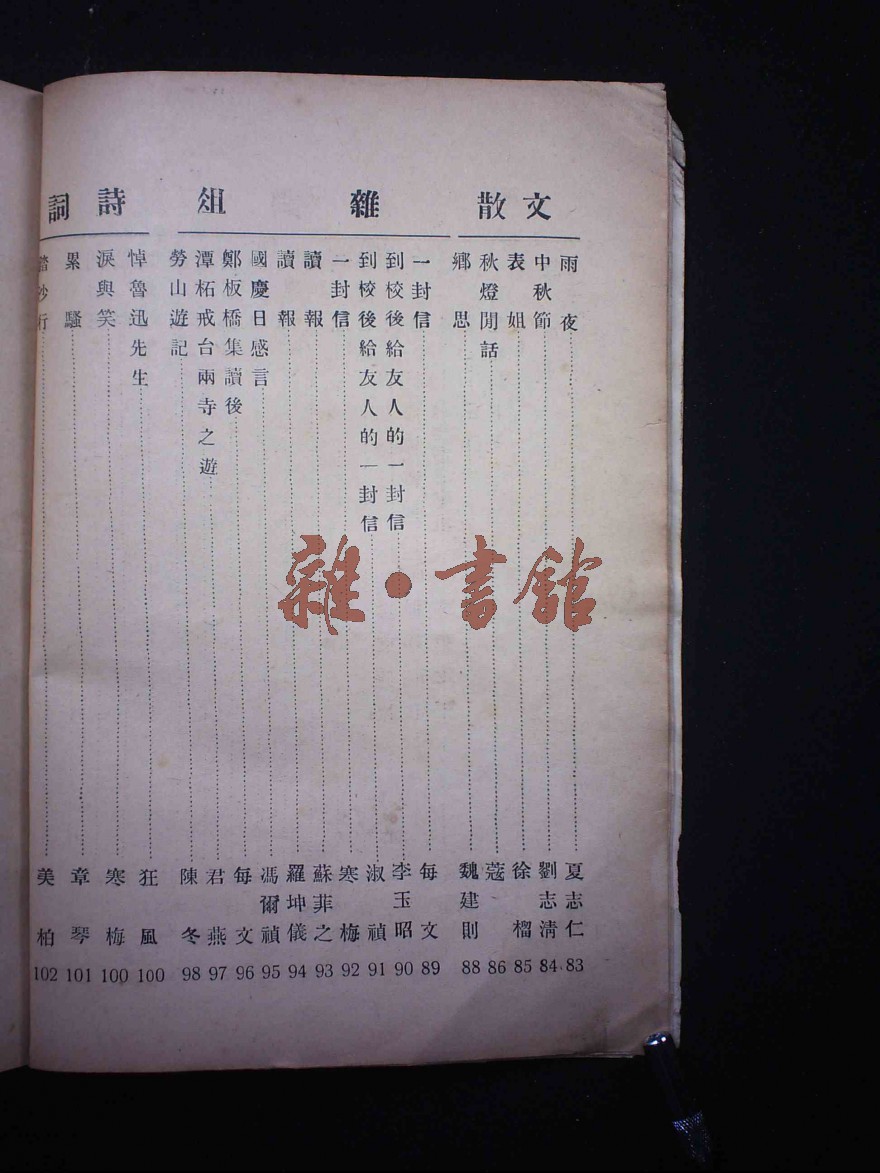 散文
雨夜 夏志仁 83
中秋節 劉志清 84
表姐 徐榴 85
秋燈閒話 蔻 86
鄉思 魏建則 88
雜俎
一封信 每文 89
到校後給友人的一封信 李玉昭 90
到校後給友人的一封信 淑禎 91
一封信 寒梅 92
讀報 蘇菲之 93
讀報 羅坤儀 94
國慶日感言 馮爾禎 95
鄭板橋集讀後 每文 96
潭柘戒台兩寺之遊 君燕 97
勞山遊記 陳冬 98
詩詞
悼魯迅先生 狂風 100
淚與笑 寒梅 100
累騷 章琴 101
踏沙行 美柏 102
雜·書館